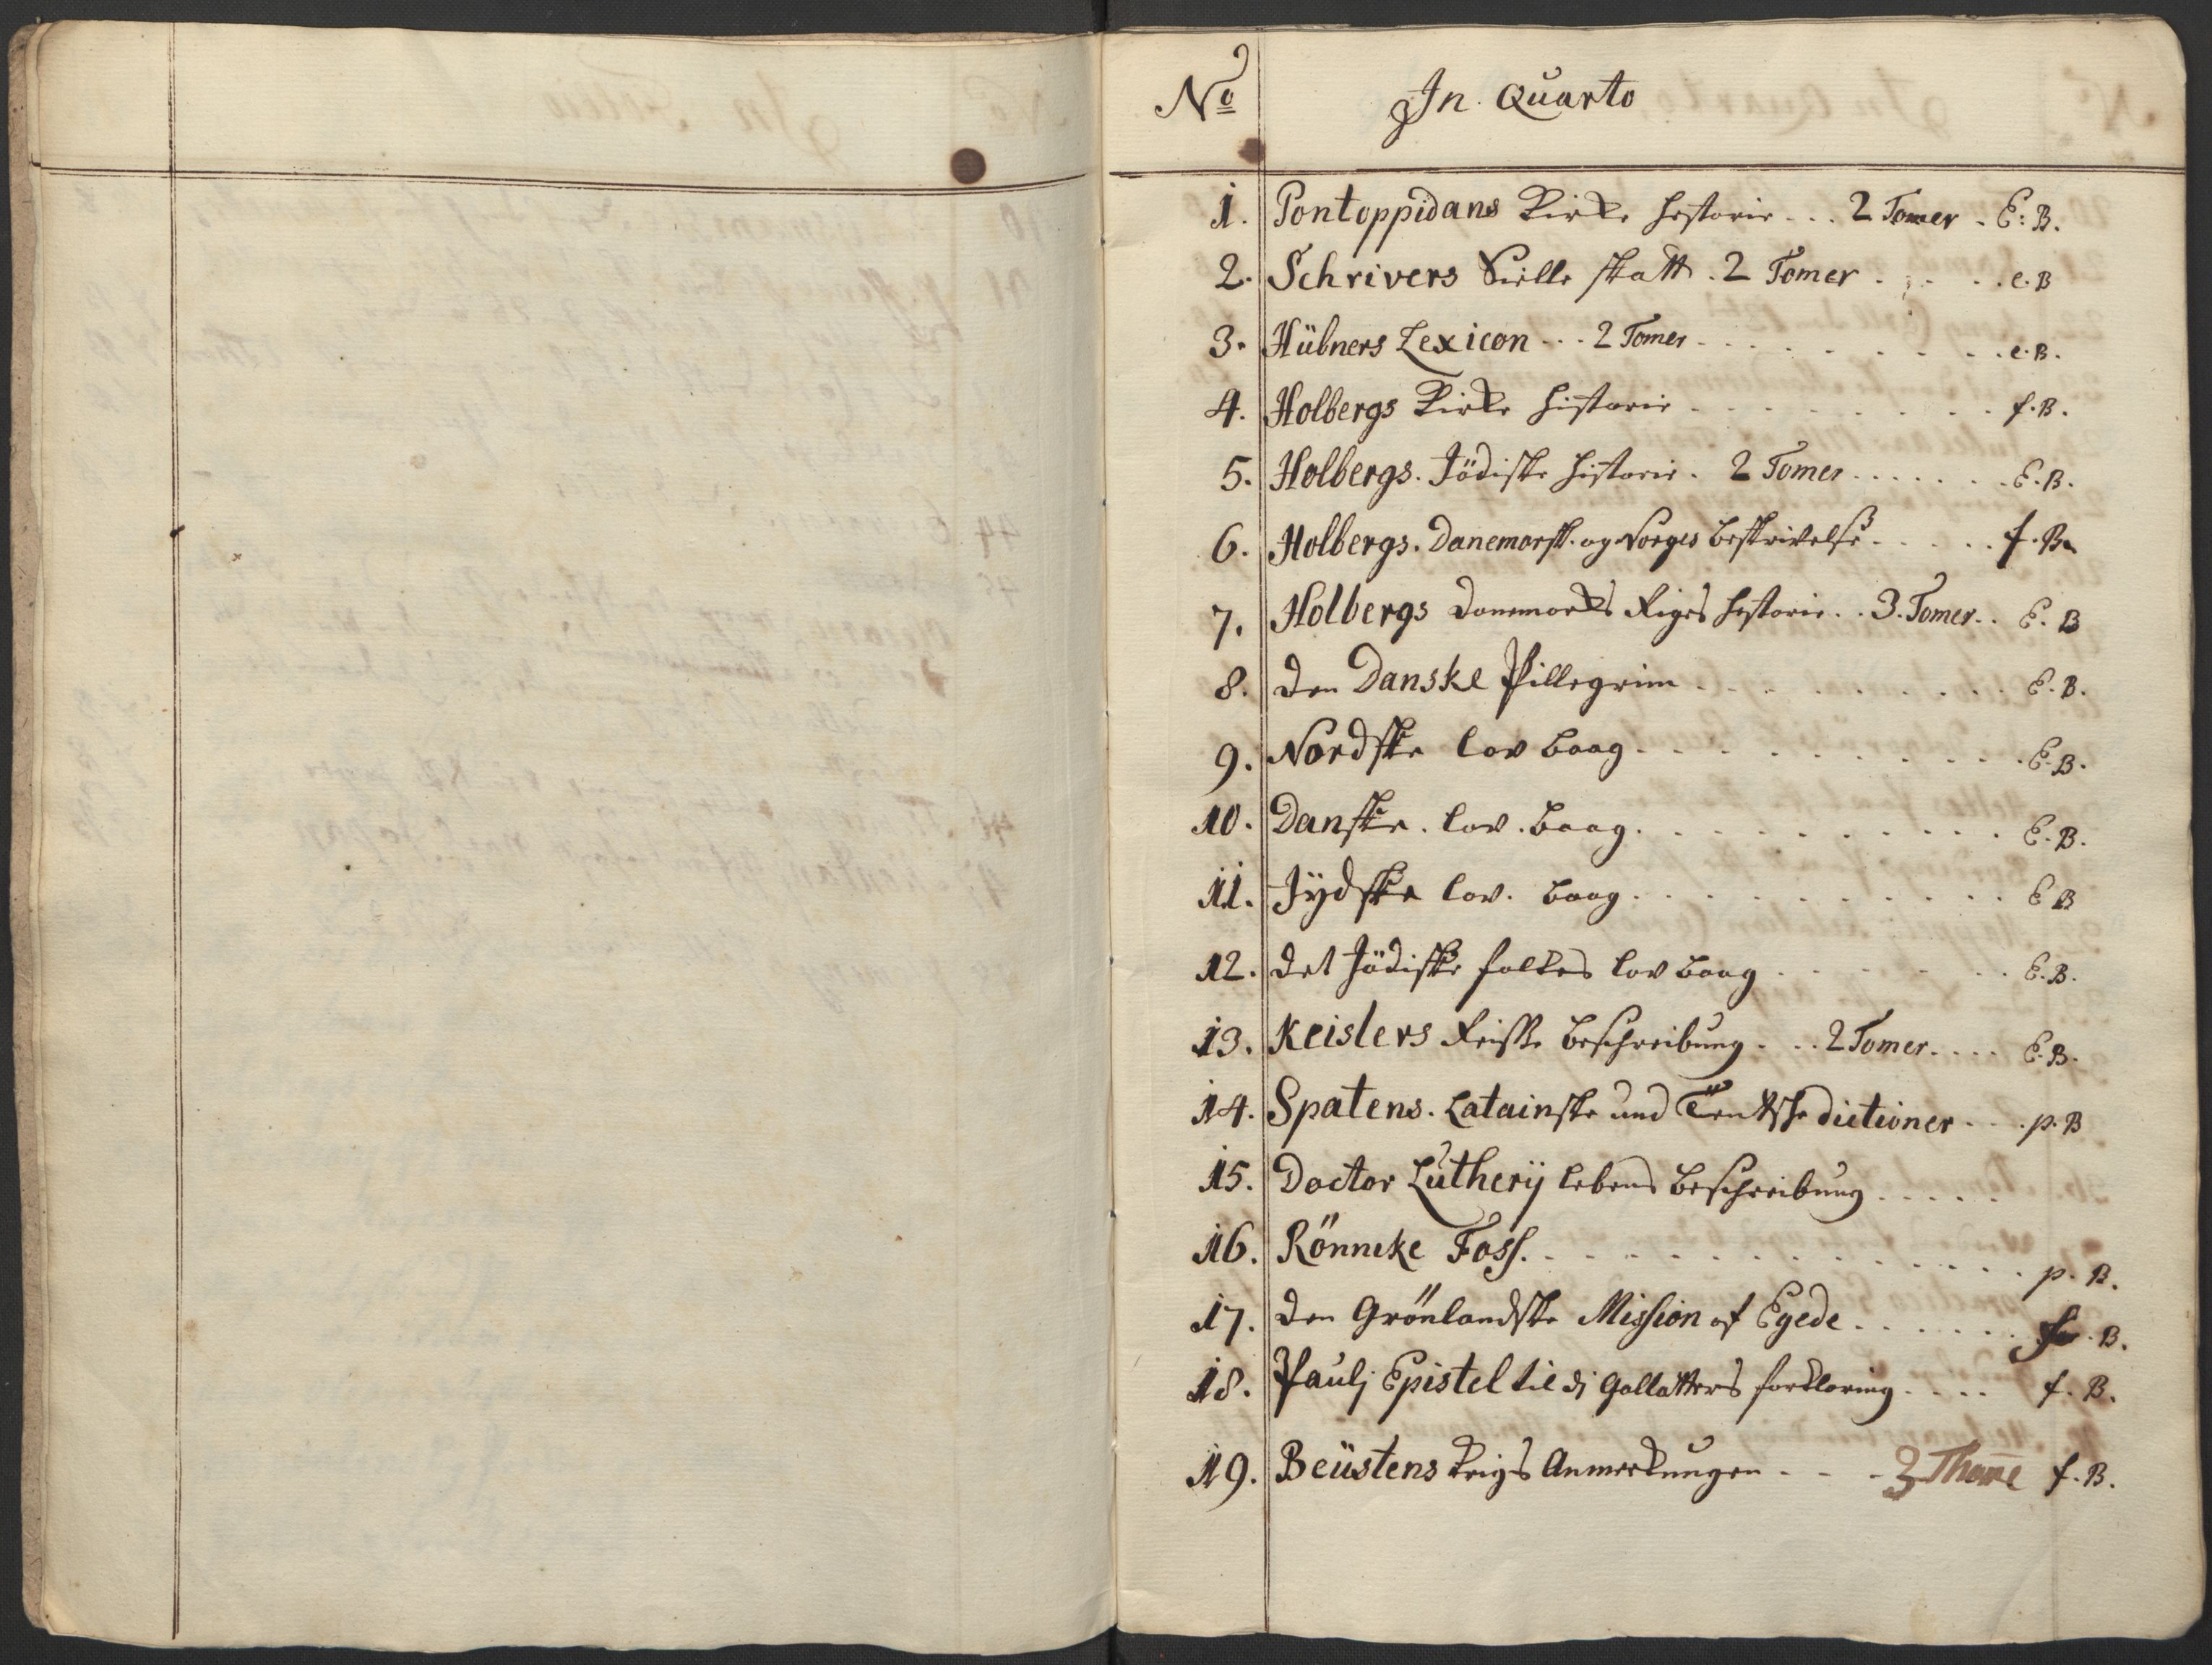 No In Quarto
1. Pontoppidans Kirke Historie . . . 2 Tomer . E: B.
2. Schrivers Sielle skatt . 2 Tomer . . . . e. B
3. Hübners Lexicon . . . 2 Tomer . . . . . . . . e. B.
4. Holbergs Kirke Historie . . . . . . . . . f. B.
5. Holbergs. Jödiske Historie . 2 Tomer . . . . . . . E. B.
6. Holbergs. Danemarsk. og Norges beskrivelse . . . . . f. B.
7. Holbergs Danemarks Riges Historie . . 3. Tomer . . E. B
8. Den Danske Pillegrim . . . . . . . . . E. B.
9. Nordske lov baag . . . . . . . . . . E. B.
10. Danske. lov. baag. . . . . . . . . . . E. B.
11. Jÿdske lov. baag . . . . . . . . . . E B
12. Det Jödiske folkes lov baag . . . . . . . E. B.
13. Keislers Reisse beschreibung . . . 2 Tomer . . . . E. B.
14. Spatens. Latainske und Teutsche dictioner . . . p. B
15. Doctor Lutherij lebens beschreibung . . . . .
16. Rönneke Foss. . . . . . . . . . . . . p. B.
17. Den Grönlandske Mission af Egede . . . . . . . B.
18. Paulj Epistel til dj Gallatters forklaring . . . . f. B.
19. Beüstens Krigs Anmerkungen . . . 3 Thome f. B.